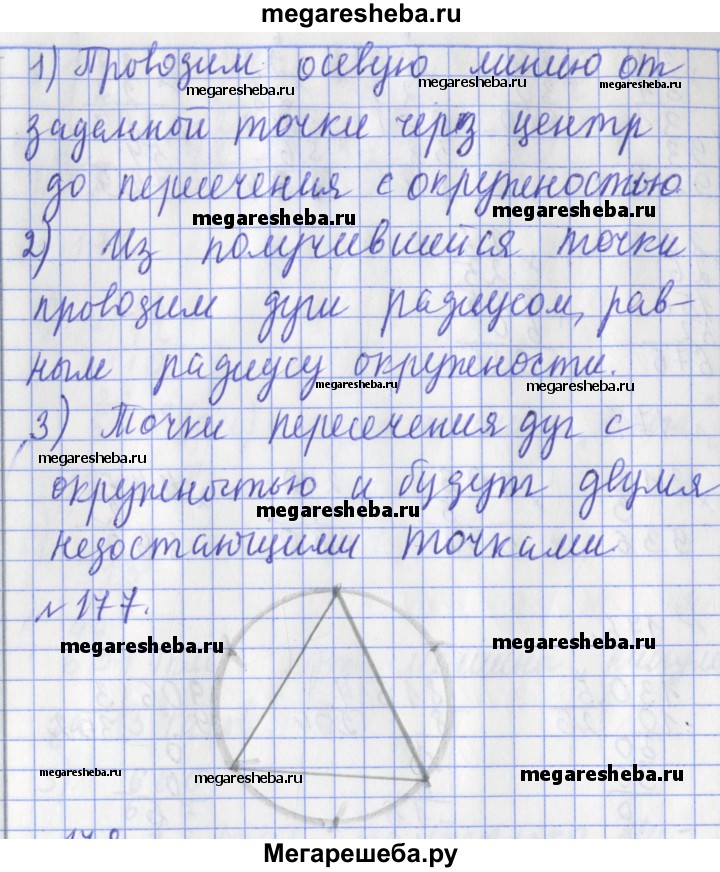 megaresheba.ru
1) Проводим осевую линию от
megaresheba.ru megaresheba.ru megaresheba.ru
заданной точки через центр
до пересечения с окружностью
megaresheba.ru megaresheba.ru
2) Из получившейся точки
проводим дуги радиусом, рав-
ным радиусу окружности.
megaresheba.ru megaresheba.ru
3) Точки пересечения дуг с
megaresheba.ru
окружностью и будут двумя
megaresheba.ru
недостающими точками
№ 177.
megaresheba.ru megaresheba.ru
megaresheba.ru megaresheba.ru megaresheba.ru
Мегарешеба.ру